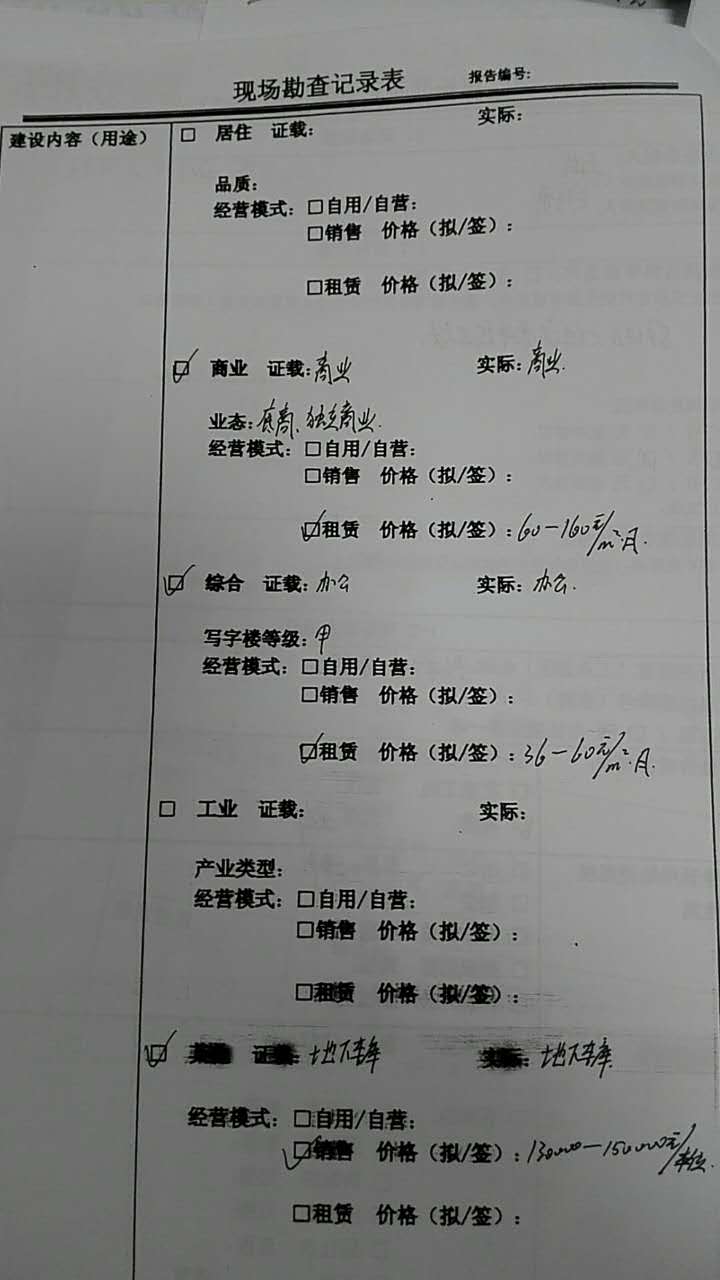 现场勘查记录表 报告编号:
建设内容（用途） □ 居住 证载: 实际:
品质:
经营模式: □自用/自营:
□销售 价格（拟/签）:
□租赁 价格（拟/签）:
☑ 商业 证载: 商业 实际: 商业.
业态: 底商、独立商业.
经营模式: □自用/自营:
□销售 价格（拟/签）:
☑租赁 价格（拟/签）: 60-160元/m²·月.
☑ 综合 证载: 办公 实际: 办公.
写字楼等级: 甲
经营模式: □自用/自营:
□销售 价格（拟/签）:
☑租赁 价格（拟/签）: 36-60元/m²·月.
□ 工业 证载: 实际:
产业类型:
经营模式: □自用/自营:
□销售 价格（拟/签）:
□租赁 价格（拟/签）:
☑ 证载: 地下车库 实际: 地下车库
经营模式: □自用/自营:
☑销售 价格（拟/签）: 130000-150000元/车位.
□租赁 价格（拟/签）: